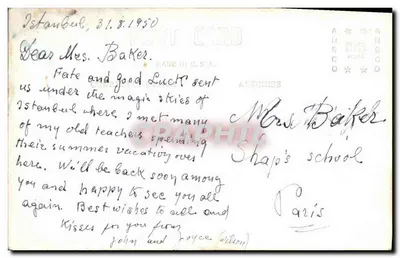 Istanbul, 31.8.1950
Dear Mrs. Baker.
Fate and good Luck sent
us under the magic skies of
Istanbul where I met many
of my old teachers spending
their summer vacation over
here. We'll be back soon among
you and happy to see you all
again. Best wishes to all and
Kisses for you from
John and Joyce
Mrs Baker
Shap's school
Paris